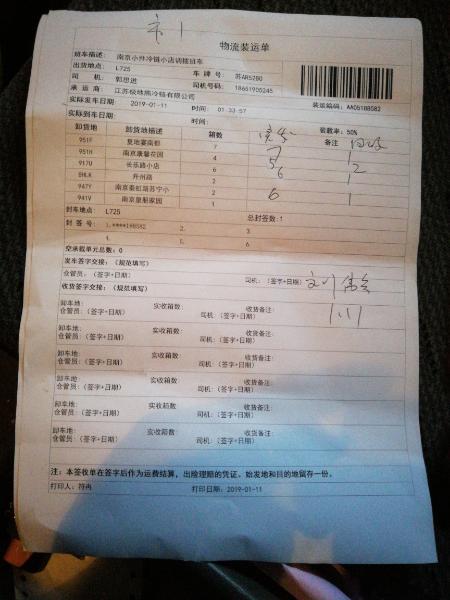 物流装运单
班车描述: 南京小件冷链小店调拨班车
出货地点: L725 车 牌 号: 苏AR5280
司 机: 郭思进 司机号码: 18651905245
承 运 商: 江苏极地熊冷链有限公司
实际发车日期: 2019-01-11 时间: 01:33:57 装运编码: AA05188582
实际到车日期: 时间: 装载率: 50%
卸货地 卸货地描述 箱数 备注
951F 复地宴南都 7 7 1
951H 南京康馨花园 4 5 2
917U 长乐路小店 6 6
8HLK 升州路 2 1
947Y 南京秦虹路苏宁小 2 6 1
941V 南京星那家园 1
封车地点: L725 总封签数: 1
封 签 号: 1.****188582 2. 3.
4. 5. 6.
空承载单元总数: 0
发车签字交接: (规范填写)
仓管员: (签字+日期) 司机: (签字+日期)
收货签字交接: (规范填写) 1.11
卸车地: 实收箱数: 收货备注:
仓管员: (签字+日期) 司机: (签字+日期)
卸车地: 实收箱数: 收货备注:
仓管员: (签字+日期) 司机: (签字+日期)
卸车地: 实收箱数: 收货备注:
仓管员: (签字+日期) 司机: (签字+日期)
卸车地: 实收箱数 收货备注:
仓管员: (签字+日期) 司机: (签字+日期)
卸车地: 实收箱数: 收货备注:
仓管员: (签字+日期) 司机: (签字+日期)
卸车地: 实收箱数: 收货备注:
仓管员: (签字+日期) 司机: (签字+日期)
注: 本签收单在签字后作为运费结算, 出险理赔的凭证。始发地和目的地留存一份。
打印人: 符冉 打印日期: 2019-01-11